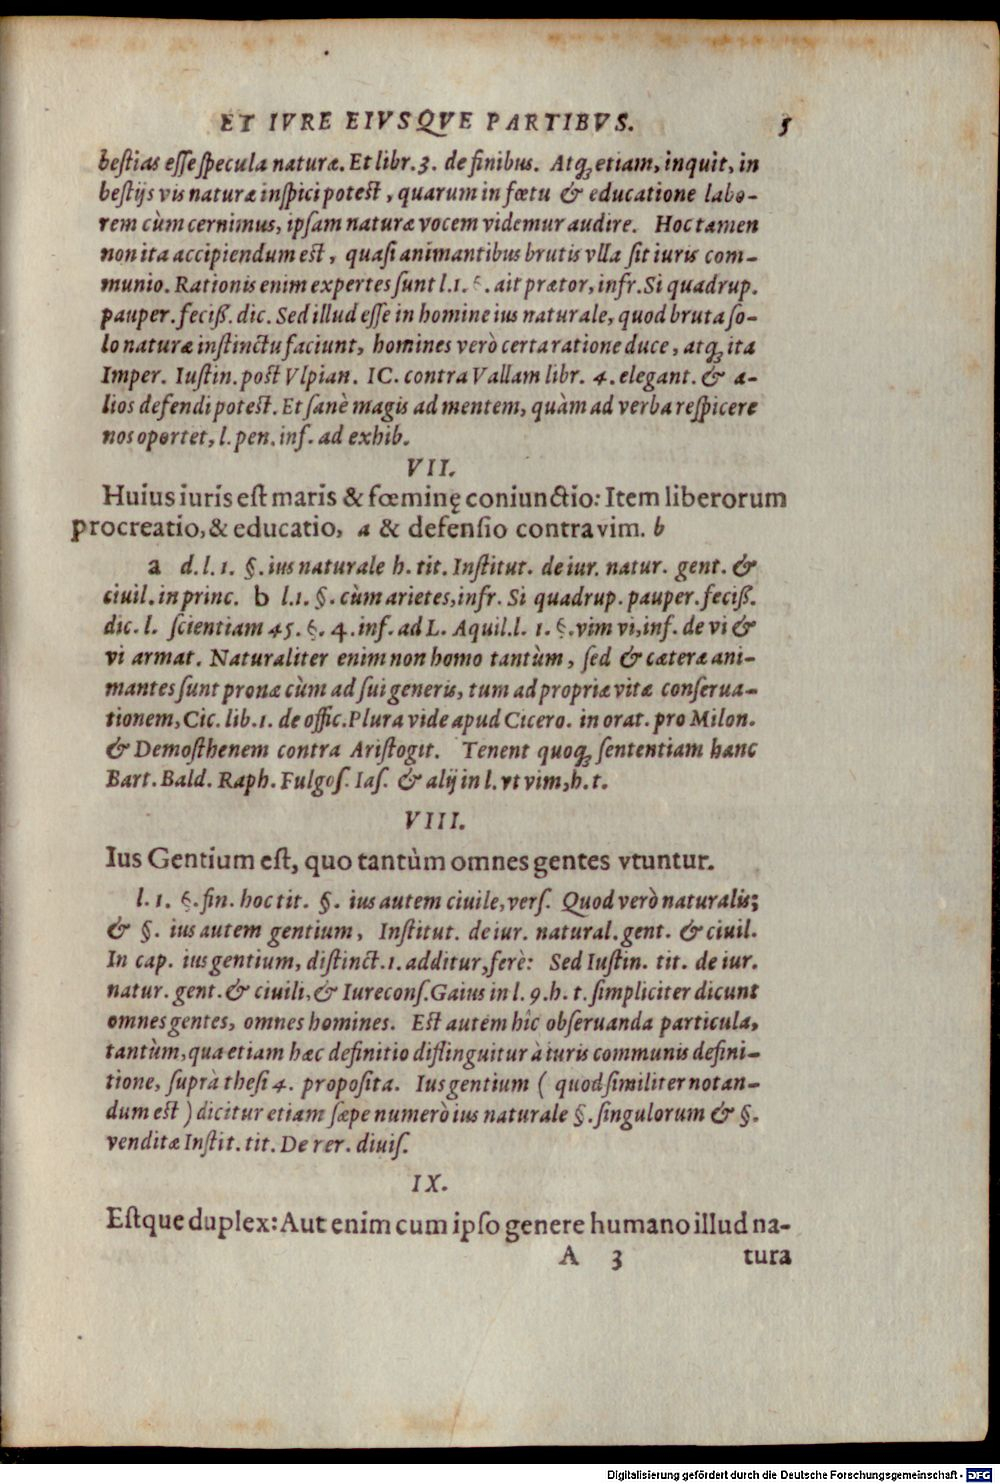 ET IVRE EIVSQVE PARTIBVS. 5
bestias esse specula naturæ. Et libr. 3. de finibus. Atq; etiam, inquit, in
bestijs vis naturæ inspici potest, quarum in fœtu & educatione labo-
rem cùm cernimus, ipsam naturæ vocem videmur audire. Hoc tamen
non ita accipiendum est, quasi animantibus brutis vlla sit iuris com-
munio. Rationis enim expertes sunt l. 1. §. ait prætor, infr. Si quadrup.
pauper. feciß. dic. Sed illud esse in homine ius naturale, quod bruta so-
lo naturæ instinctu faciunt, homines verò certa ratione duce, atq; ita
Imper. Iustin. post Vlpian. IC. contra Vallam libr. 4. elegant. & a-
lios defendi potest. Et sanè magis ad mentem, quàm ad verba respicere
nos oportet, l. pen. inf. ad exhib.
VII.
Huius iuris est maris & fœminę coniunctio: Item liberorum
procreatio, & educatio, a & defensio contra vim. b
a d. l. 1. §. ius naturale h. tit. Institut. de iur. natur. gent. &
ciuil. in princ. b l. 1. §. cùm arietes, infr. Si quadrup. pauper. feciß.
dic. l. scientiam 45. §. 4. inf. ad L. Aquil. l. 1. §. vim vi, inf. de vi &
vi armat. Naturaliter enim non homo tantùm, sed & cæteræ ani-
mantes sunt pronæ cùm ad sui generis, tum ad propriæ vitæ conserua-
tionem, Cic. lib. 1. de offic. Plura vide apud Cicero. in orat. pro Milon.
& Demosthenem contra Aristogit. Tenent quoq; sententiam hanc
Bart. Bald. Raph. Fulgos. Ias. & alij in l. vt vim, h. t.
VIII.
Ius Gentium est, quo tantùm omnes gentes vtuntur.
l. 1. §. fin. hoc tit. §. ius autem ciuile, vers. Quod verò naturalis;
& §. ius autem gentium, Institut. de iur. natural. gent. & ciuil.
In cap. ius gentium, distinct. 1. additur, ferè: Sed Iustin. tit. de iur.
natur. gent. & ciuili, & Iurecons. Gaius in l. 9. h. t. simpliciter dicunt
omnes gentes, omnes homines. Est autem hîc obseruanda particula,
tantùm, qua etiam hæc definitio distinguitur à iuris communis defini-
tione, suprà thesi 4. proposita. Ius gentium ( quod similiter notan-
dum est ) dicitur etiam sæpe numerò ius naturale §. singulorum & §.
venditæ Instit. tit. De rer. diuis.
IX.
Estque duplex: Aut enim cum ipso genere humano illud na-
A 3 tura
Digitalisierung gefördert durch die Deutsche Forschungsgemeinschaft - DFG